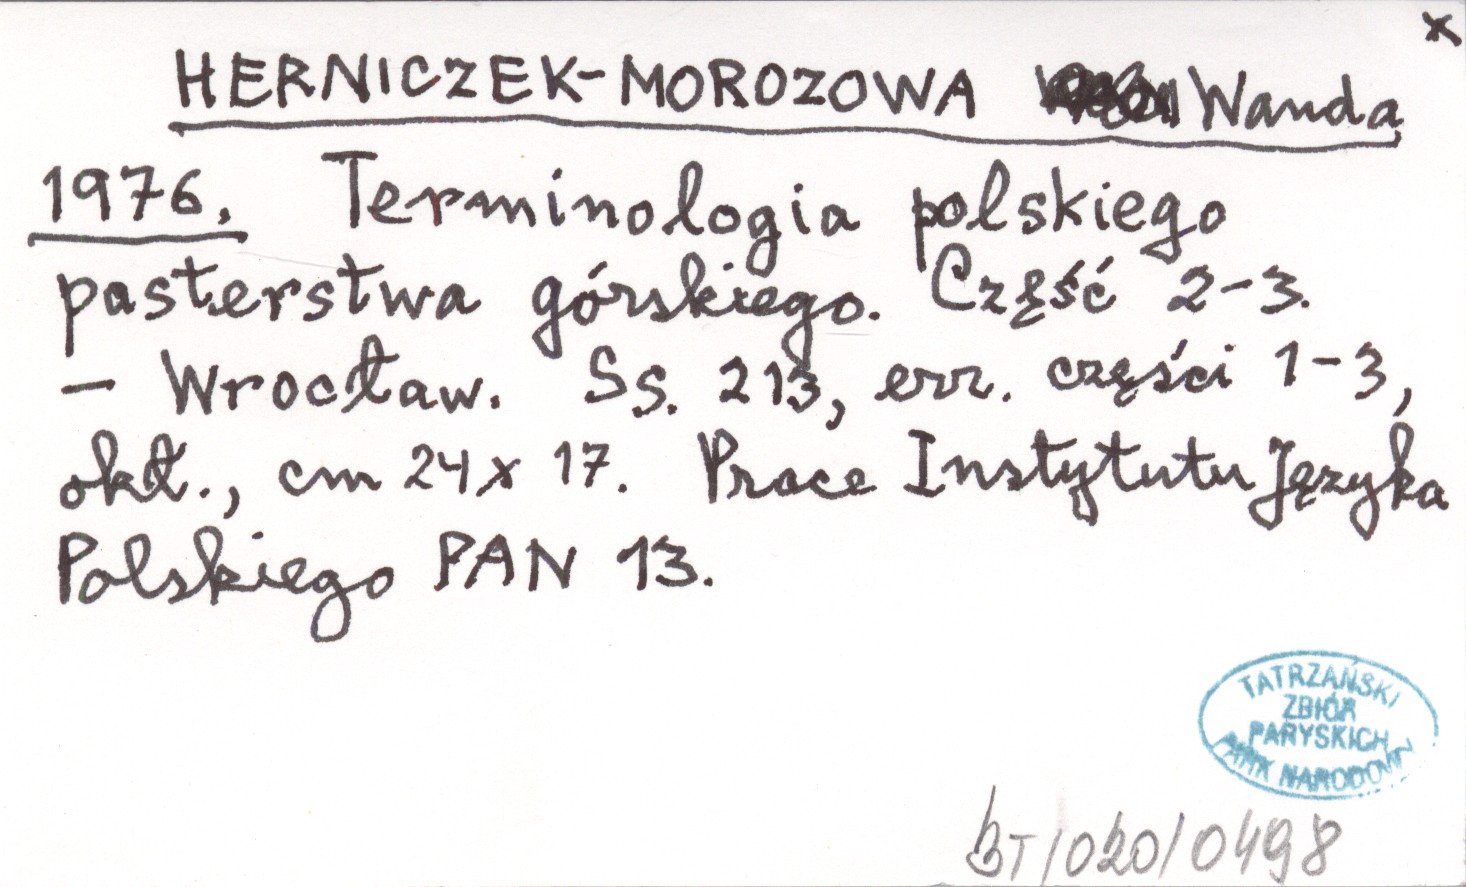 x
HERNICZEK-MOROZOWA Wanda
1976. Terminologia polskiego
pasterstwa górskiego. Część 2-3.
- Wrocław. Ss. 213, err. części 1-3,
okł., cm 24 x 17. Prace Instytutu Języka
Polskiego PAN 13.
TATRZAŃSKI
ZBIÓR
PARYSKICH
PARK NARODOWY
BT/020/0498